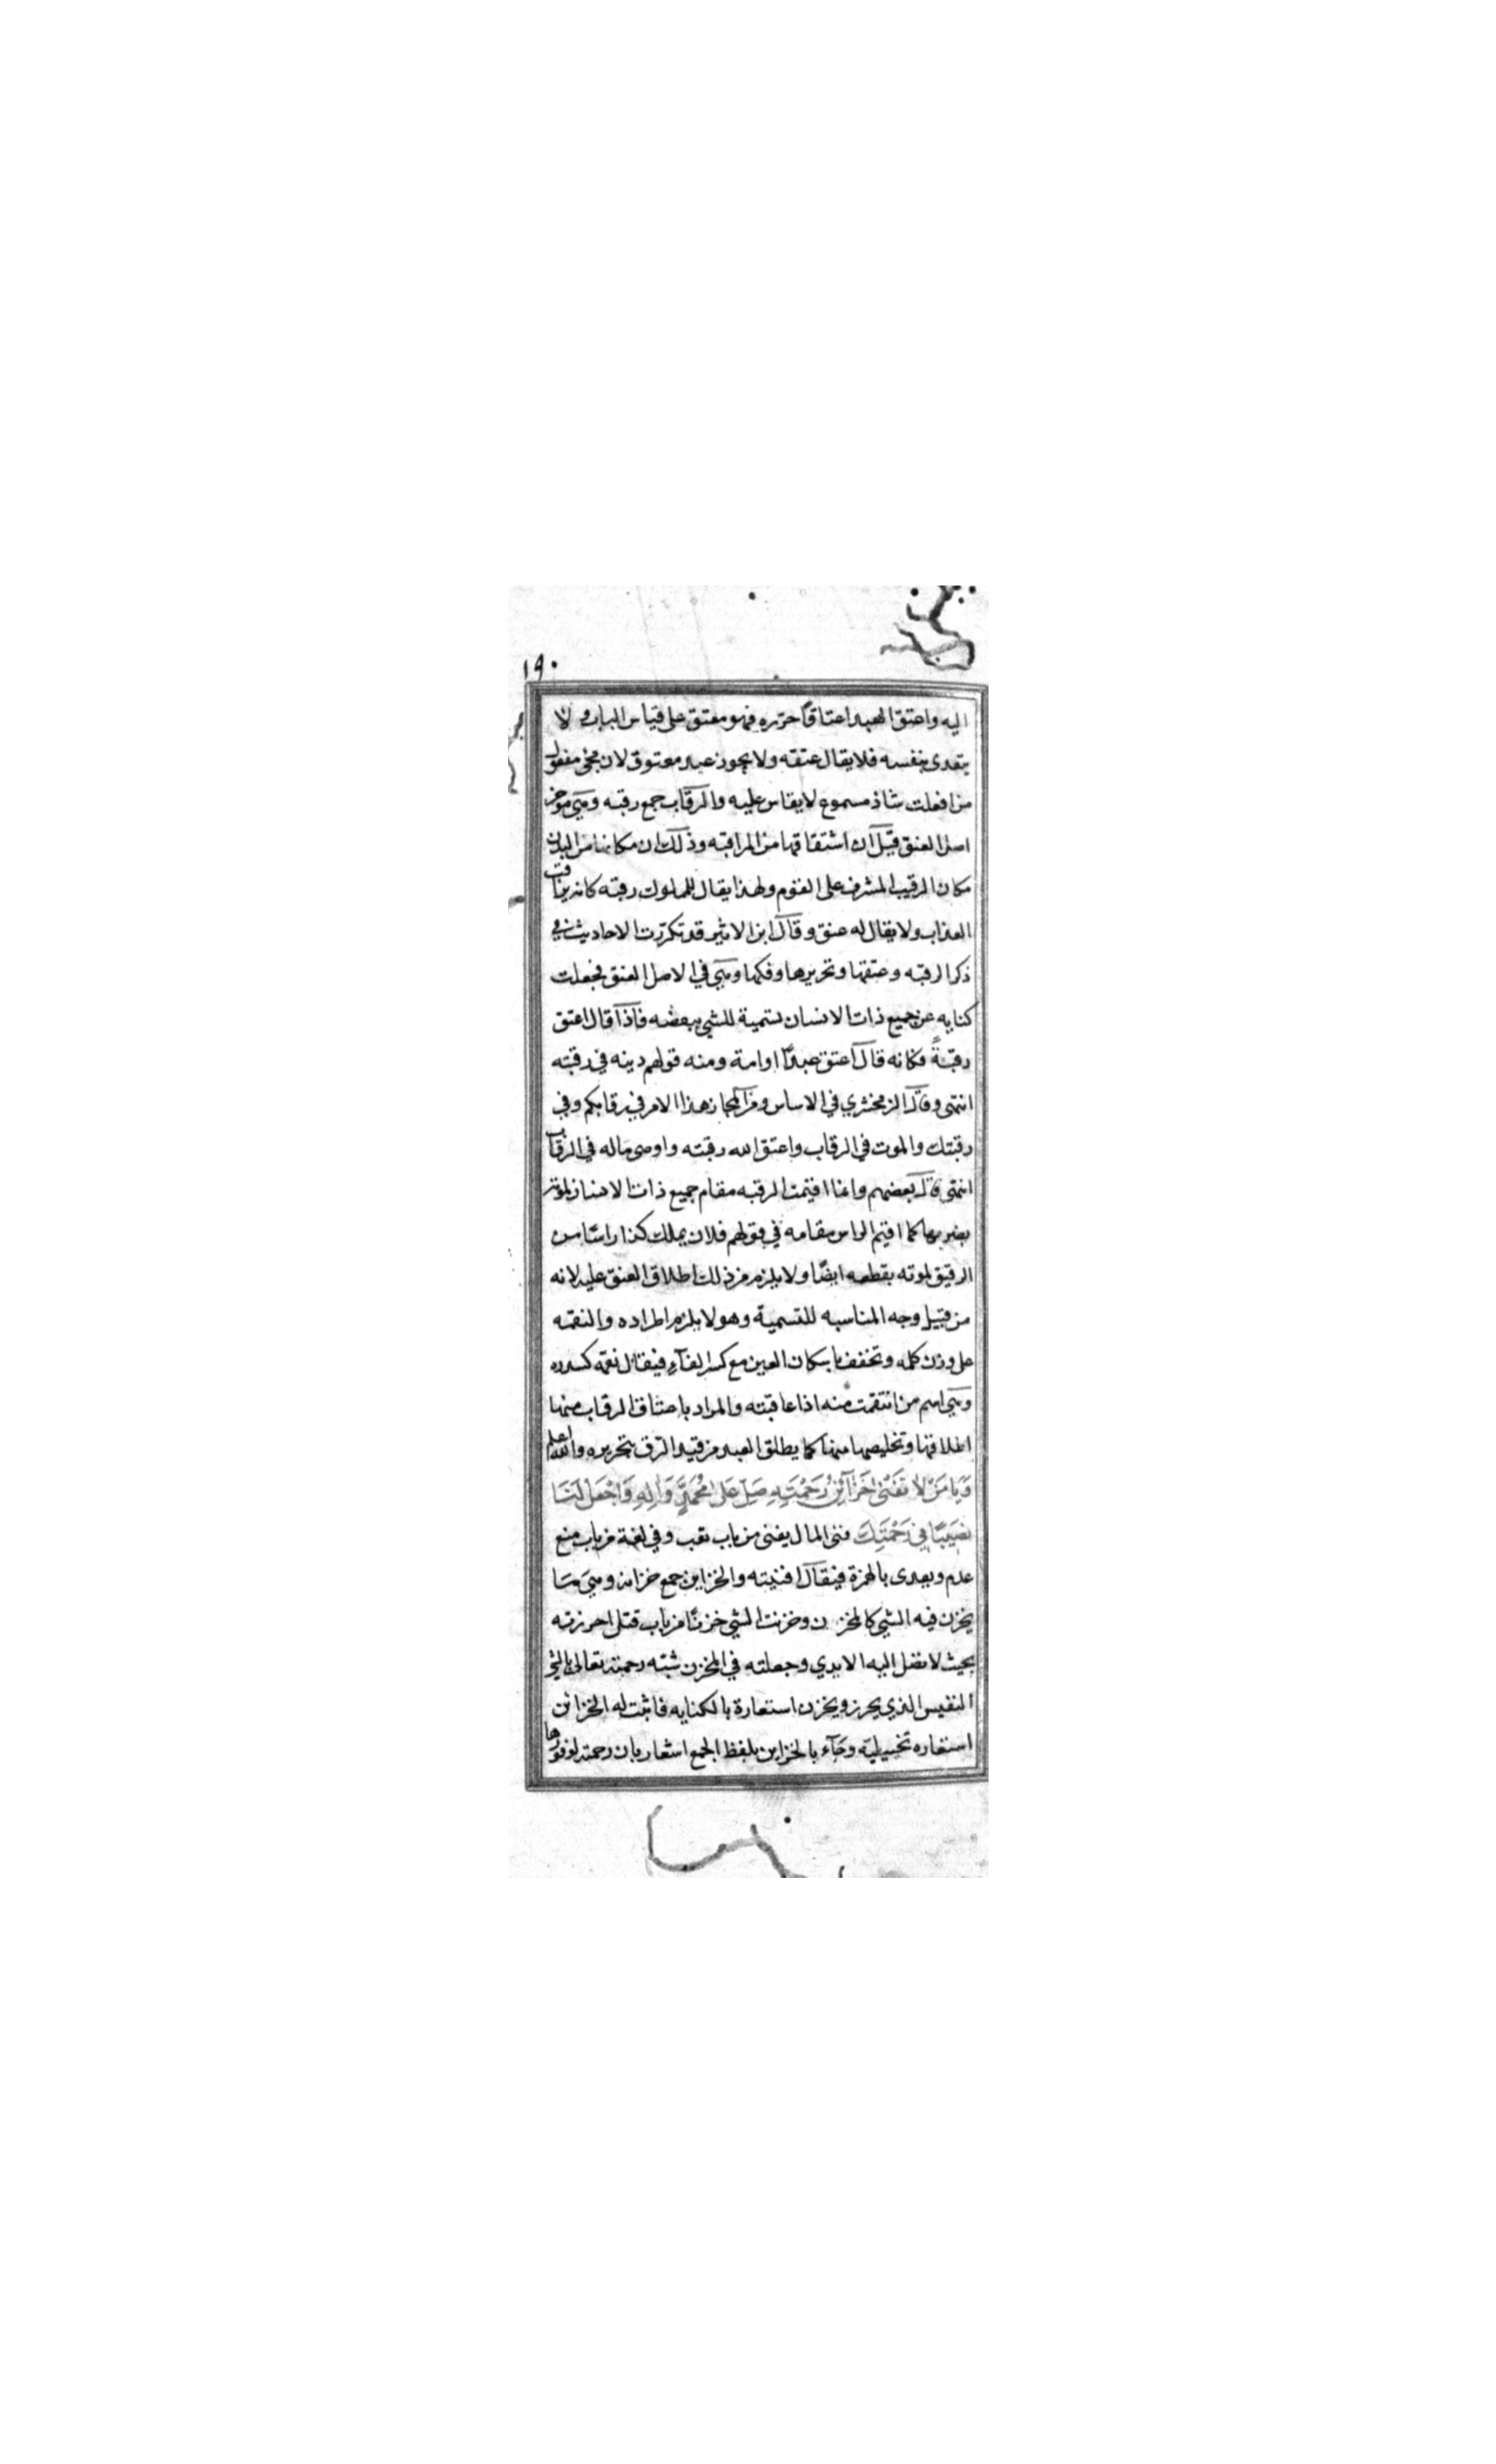 ١٩٠
اليه واعتق العبد اعتاقًا حرّره فهو معتق على قياس الباب ولا
يتعدى بنفسه فلا يقال عتقه ولا يجوز عبد معتوق لان مجئ مفعول
من افعلت شاذ مسموع لا يقاس عليه والرقاب جمع رقبه وهي مؤخر
اصل العنق قيل ان اشتقاقها من المراقبه وذلك ان مكانها من البدن
مكان الرقيب المشرف على القوم ولهذا يقال للملوك رقبه كانه يراقب
العذاب ولا يقال له عنق وقال ابن الاثير قد تكررت الاحاديث في
ذكر الرقبه وعتقها وتحريرها وفكها وهي في الاصل العنق فجعلت
كنايه عن جميع ذات الانسان تسمية للشي ببعضه فاذا قال اعتق
رقبةً فكانه قال اعتق عبدًا او امة ومنه قولهم دينه في رقبته
انتهى وقال الزمخشري في الاساس ومن المجاز هذا الامر في رقابكم وفي
رقبتك والموت في الرقاب واعتق الله رقبته واوصى ماله في الرقاب
انتهى قال بعضهم وانما اقيمت الرقبه مقام جميع ذات الانسان لموته
بضربها كما اقيم الراس مقامه في قولهم فلان يملك كذا راسًا من
الرقيق لموته بقطعه ايضًا ولا يلزم من ذلك اطلاق العنق عليه لانه
من قبيل وجه المناسبه للتسمية وهو لا يلزم اطراده والنقمه
على وزن كلمه وتخفف باسكان العين مع كسر الفآء فيقال نقمه كسدره
وهي اسم من انتقمت منه اذا عاقبته والمراد باعتاق الرقاب منها
اطلاقها وتخليصها منها كما يطلق العبد من قيد الرق بتحريره والله اعلم
وَيَا مَنْ لا تَفْنىٰ خَزَآئِنُ رَحْمَتِهِ صَلِّ عَلىٰ مُحَمَّدٍ وَاٰلِهِ وَاجْعَلْ لَنَا
نَصِيبًا فِي رَحْمَتِكَ فنى المال يفنى من باب تعب وفي لغة من باب منع
عدم ويعدى بالهمزة فيقال افنيته والخزاين جمع خزانه وهي ما
يخزن فيه الشي كالمخزن وخزنت الشي خزنًا من باب قتل احرزته
بحيث لا تصل اليه الايدي وجعلته في المخزن شبّه رحمته تعالى بالشي
النفيس الذي يحرز ويخزن استعارة بالكنايه فاثبت له الخزائن
استعاره تخييلية وجآء بالخزاين بلفظ الجمع اشعار بان رحمته لوفورها